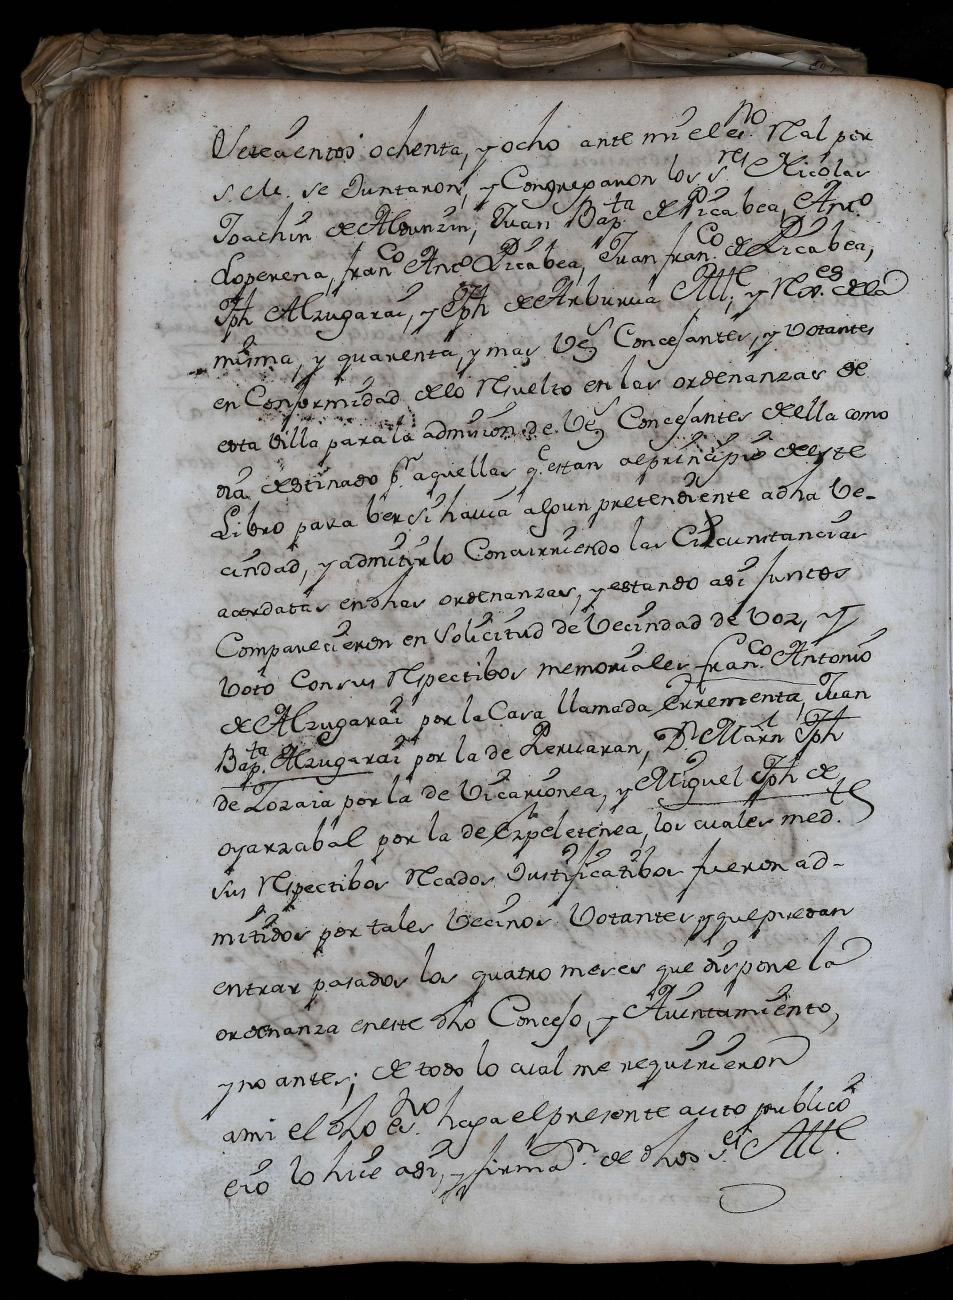 Setecientos ochenta, y ocho ante mi el es.no Real por
S. M. se Juntaron, y Congregaron los S.res Nicolas
Joachin de Alduncin, Juan Bap.ta de Picabea, Ant.o
Loperena, fran.co Ant.o Picabea, Juan fran.co de Picabea,
Jph Alzugarai, y Jph de Arburua Alt.l, y Rex.es de la
misma, y quarenta, y mas Vez.s Concejantes, y Votantes
en Conformidad de lo Resuelto en las ordenanzas de
esta Villa para la admision de Vez.s Concejantes de ella como
dia destinado p.r aquellas q.e estan al principio de este
Libro para ber si havia algun pretendiente a dha Ve-
cindad, y admitirlo Concurriendo las Circunstancias
acordatas en dhas ordenanzas, y estando asi juntos
Comparecieron en Solicitud de Vecindad de Voz, y
Voto con sus Respectibos memoriales fran.co Antonio
de Alzugarai por la Casa llamada Errementa, Juan
Bap.ta Alzugarai por la de Peruaran, D.n Mar.n Jph
de Zozaia por la de Vicarionea, y Miguel Jph de
oyarzabal por la de Ezpeletenea, los cuales med.te
sus Respectibos Recados Justificatibos fueron ad-
mitidos por tales Vecinos Votantes y que puedan
entrar pasados los quatro meses que dispone la
ordenanza en este dho Concejo, y Aiuntamiento,
y no antes; de todo lo cual me requirieron
a mi el dho es.no haga el presente auto publico
e io lo hice asi, y firma.n de dhos S.res Alt.l